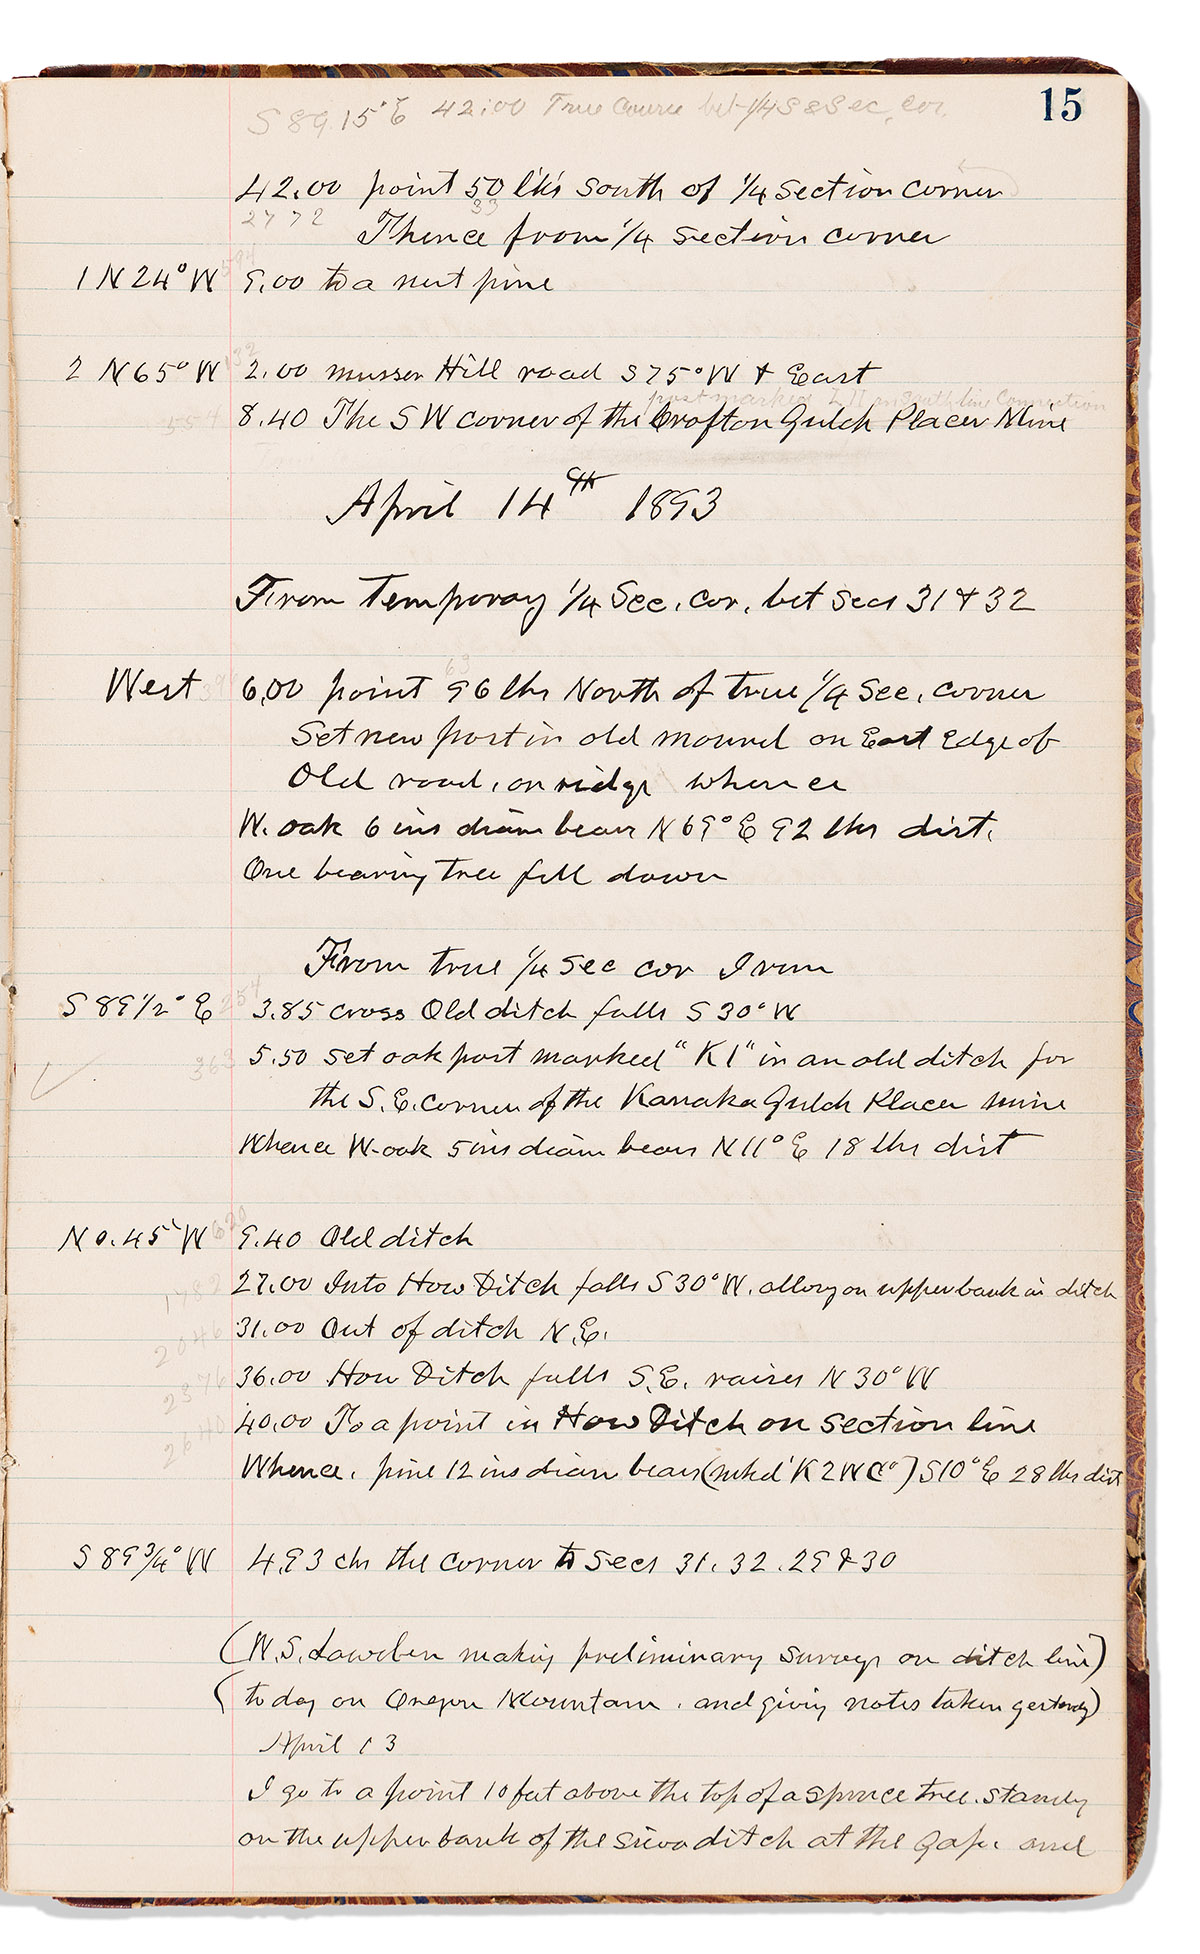 15
S 89.15' E 42.00 True Course bet 1/4 S & Sec, cor.
42.00 point 50 lks South of 1/4 Section Corner
27 72 33
Thence from 1/4 Section corner
1 N 24° W 9.00 to a nut pine
2 N 65° W 2.00 musser Hill road S 75° W & East
post marked on South line Connection
554 8.40 The S W corner of the Crofton Gulch Placer Mine
April 14th 1893
From Temporay 1/4 Sec. cor. bet Secs 31 & 32
63
West 6.00 point 96 lks North of true 1/4 Sec. corner
Set new post in old mound on East Edge of
Old road, on ridge whence
W. oak 6 ins diam bears N 69° E 92 lks dist.
One bearing tree fell down
From true 1/4 Sec cor I run
S 89 1/2° E 254 3.85 cross Old ditch falls S 30° W
363 5.50 set oak post marked "K1" in an old ditch for
the S.E. corner of the Kanaka Gulch Placer mine
Whence W. oak 5 ins diam bears N 11° E 18 lks dist
N 0.45' W 620 9.40 Old ditch
1782 27.00 Into How Ditch falls S 30° W. allong on upper bank in ditch
2046 31.00 Out of ditch N.E.
2376 36.00 How Ditch falls S.E. raises N 30° W
2640 40.00 To a point in How Ditch on Section line
Whence. pine 12 ins diam bears (mkd "K2WC") S 10° E 28 lks dist
S 89 3/4° W 4.93 chs the corner to Secs 31. 32. 29 & 30
(W.S. Lowden making preliminary Surveys on ditch line)
(to day on Oregon Mountain. and giving notes taken yesterday)
April 13
I go to a point 10 feet above the top of a spruce tree. standg
on the upper bank of the ditch at the Gap. and